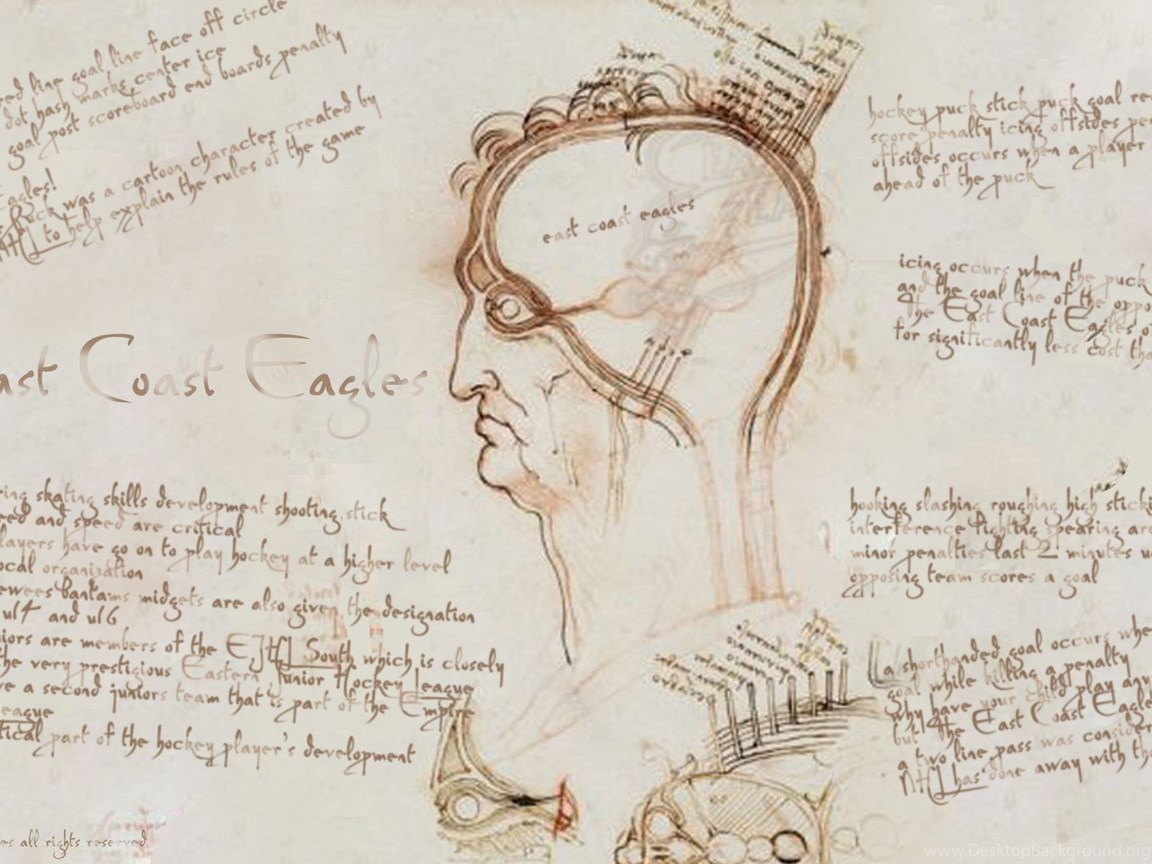 red line goal line face off circle
dot hash marks center ice
goal post scoreboard end boards penalty
Eagles!
Puck was a cartoon character created by
NHL to help explain the rules of the game
east coast eagles
ast Coast Eagles
hockey puck stick puck goal re
score penalty icing offsides pe
offsides occurs when a player
ahead of the puck
icing occurs when the puck
and the goal line of the oppo
the East Coast Eagles o
for significantly less cost tha
ing skating skills development shooting stick
eed and speed are critical
layers have go on to play hockey at a higher level
ocal organization
ewees bantams midgets are also given the designation
u14 and u16
iors are members of the EJHL South which is closely
he very prestigious Eastern Junior Hockey League
ve a second juniors team that is part of the Empire
eague
tical part of the hockey player's development
hooking slashing roughing high sticki
interference fighting spearing are
minor penalties last 2 minutes u
opposing team scores a goal
a shorthanded goal occurs whe
goal while killing a penalty
why have your child play any
but the East Coast Eagle
a two line pass was consider
NHL has done away with th
es all rights reserved
www.DesktopBackground.org